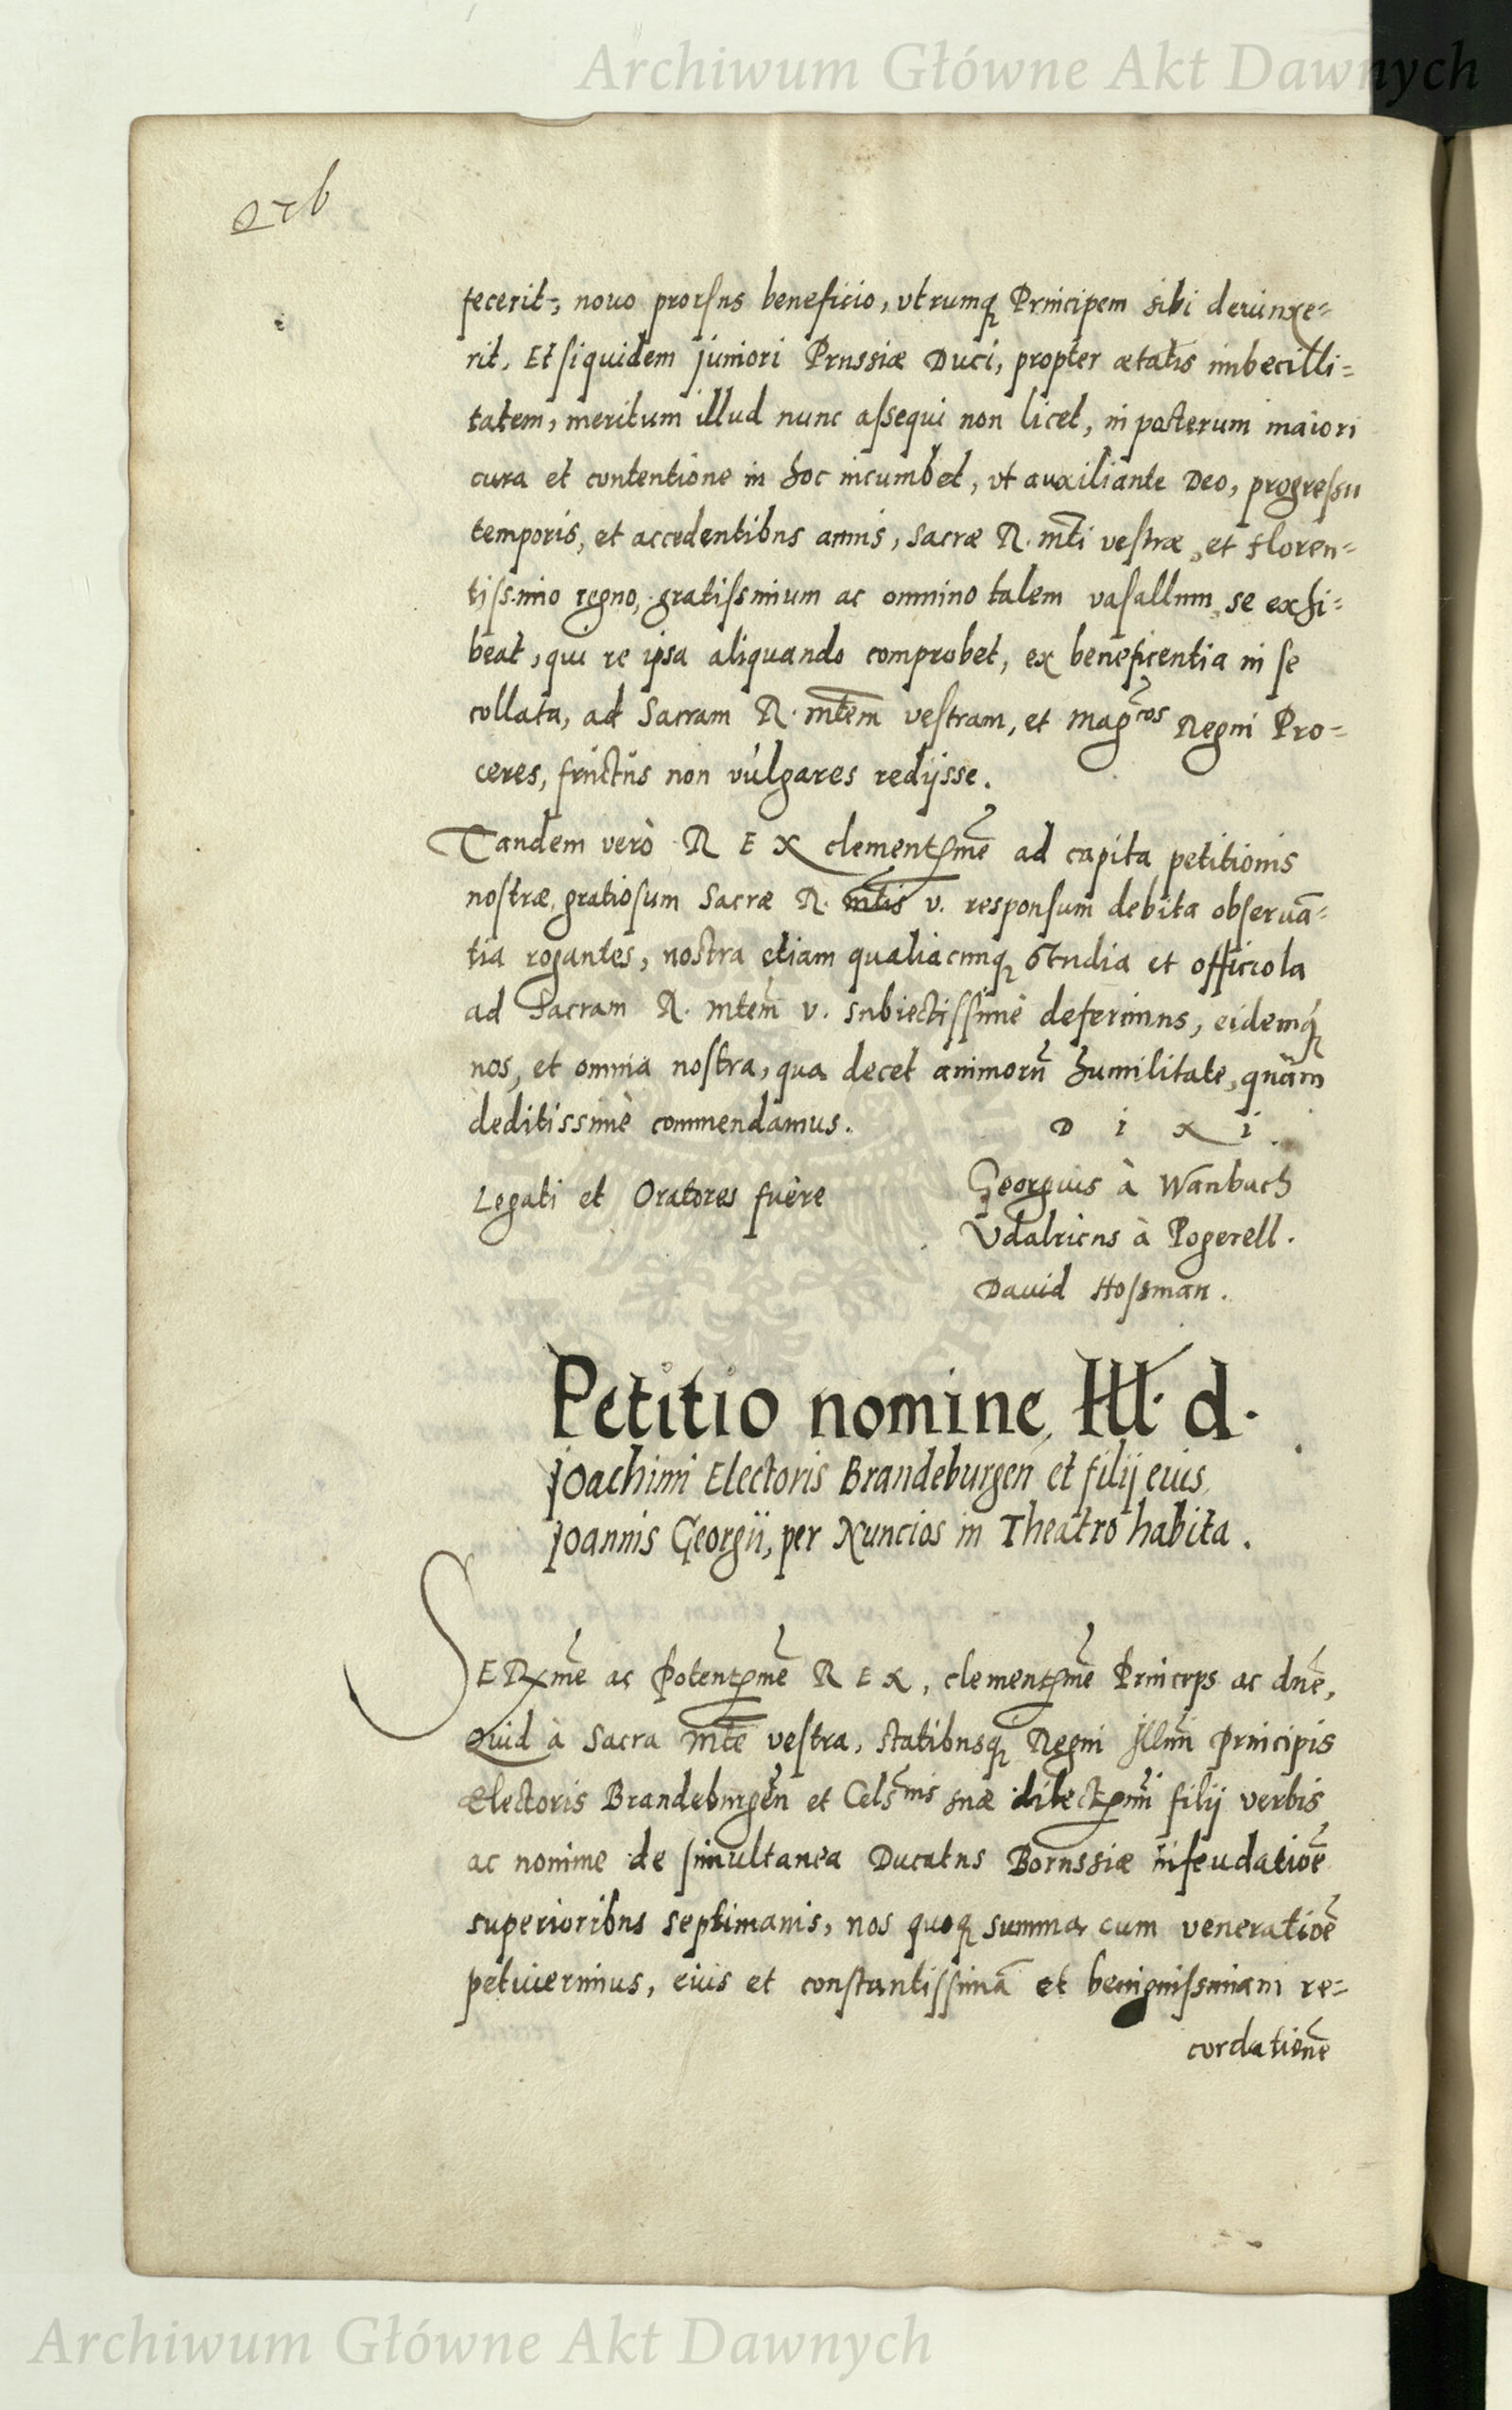 Archiwum Główne Akt Dawnych
fecerit, nouo prorsus beneficio, vtrumq̃ Principem sibi deuinxe-
rit. Et siquidem juniori Prussiæ Duci, propter ætatis imbecilli-
tatem, meritum illud nunc assequi non licet, in posterum maiori
cura et contentione in hoc incumbet, vt auxiliante Deo, progressu
temporis, et accedentibus annis, Sacræ R. mti vestræ, et floren-
tissimo regno, gratissimum ac omnino talem vasallum, se exhi-
beat, qui re ipsa aliquando comprobet, ex beneficentia in se
collata, ad Sacram R. mtem vestram, et Magcos Regni Pro-
ceres, fructus non vulgares redijsse.
Tandem verò REX clementme ad capita petitionis
nostræ, gratiosum Sacræ R. mtis v. responsum debita obseruā-
tia rogantes, nostra etiam qualiacunq̃ studia et officiola
ad Sacram R. mtem v. subiectissime deferimus, eidemq̃
nos, et omnia nostra, qua decet animorū humilitate, quàm
deditissimè commendamus.
D i x i
Legati et Oratores fuère
Georgius à Wanbach
Vdalricus à Pogerell.
Dauid Hossman.
Petitio nomine Ill. d.
Joachimi Electoris Brandeburgen et filij eius
Joannis Georgii, per Nuncios in Theatro habita.
SERme ac Potentme REX, clementme Princeps ac dne,
Quid à Sacra mte vestra, statibusq̃ Regni Illmi Principis
Electoris Brandeburgen et Celsnis suæ dilectmi filij verbis
ac nomine de simultanea Ducatus Borussiæ infeudatioē
superioribus septimanis, nos quoq̃ summa cum veneratioē
petiuerimus, eius et constantissimā et benignissimam re-
cordationē
Archiwum Główne Akt Dawnych